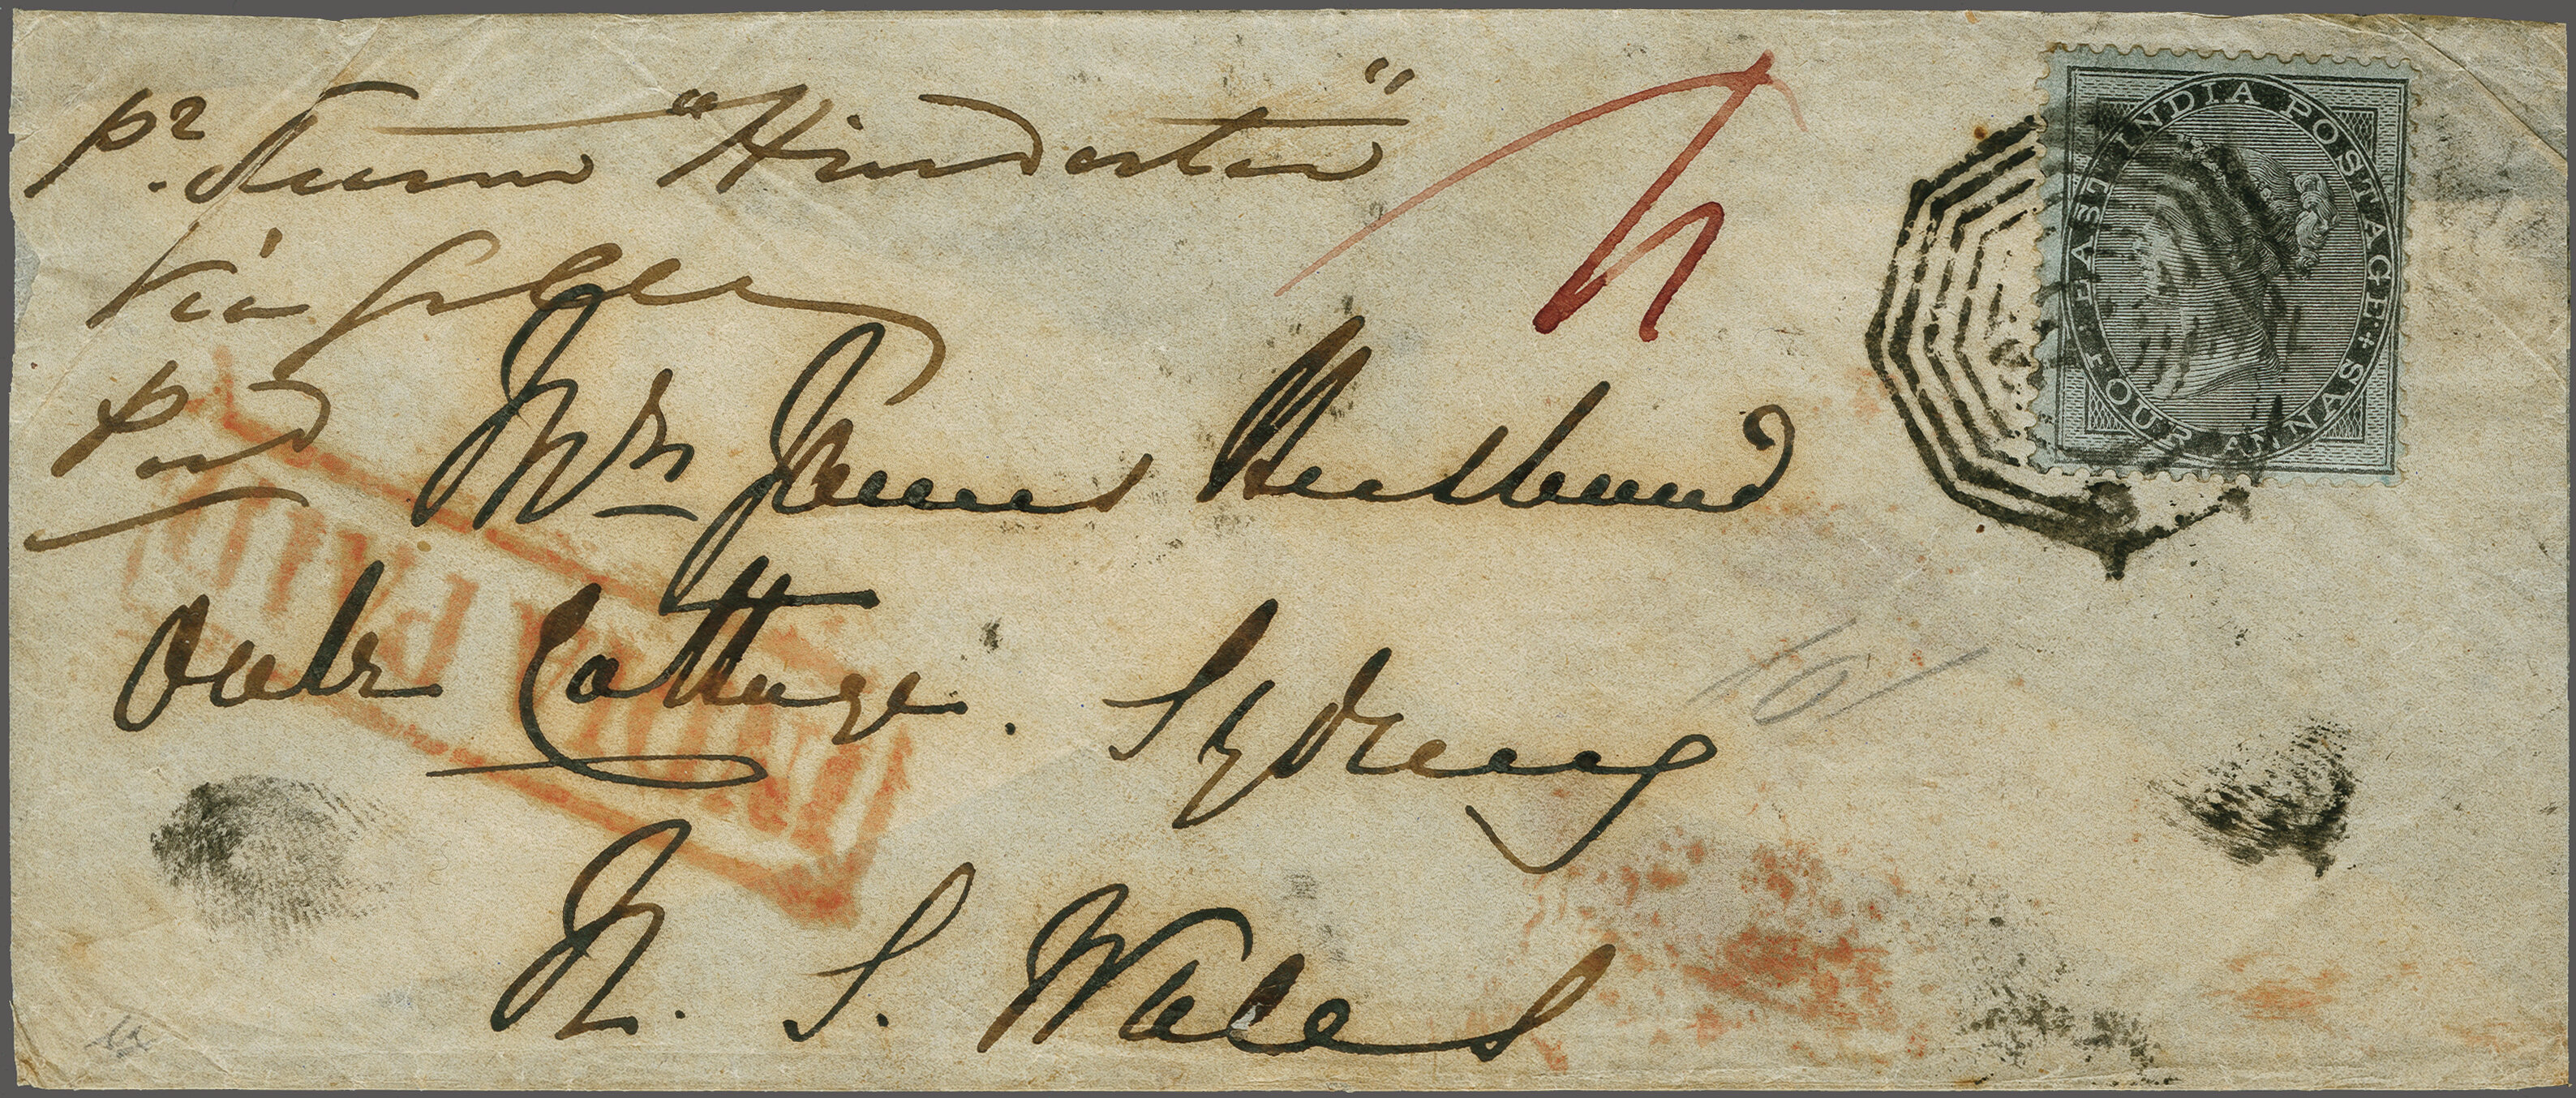 pr. Steam "Hindostan"
via Galle
paid
EAST INDIA POSTAGE
FOUR ANNAS
Mrs James Husband
Oak Cottage. Sydney
N. S. Wales
INDIA PAID